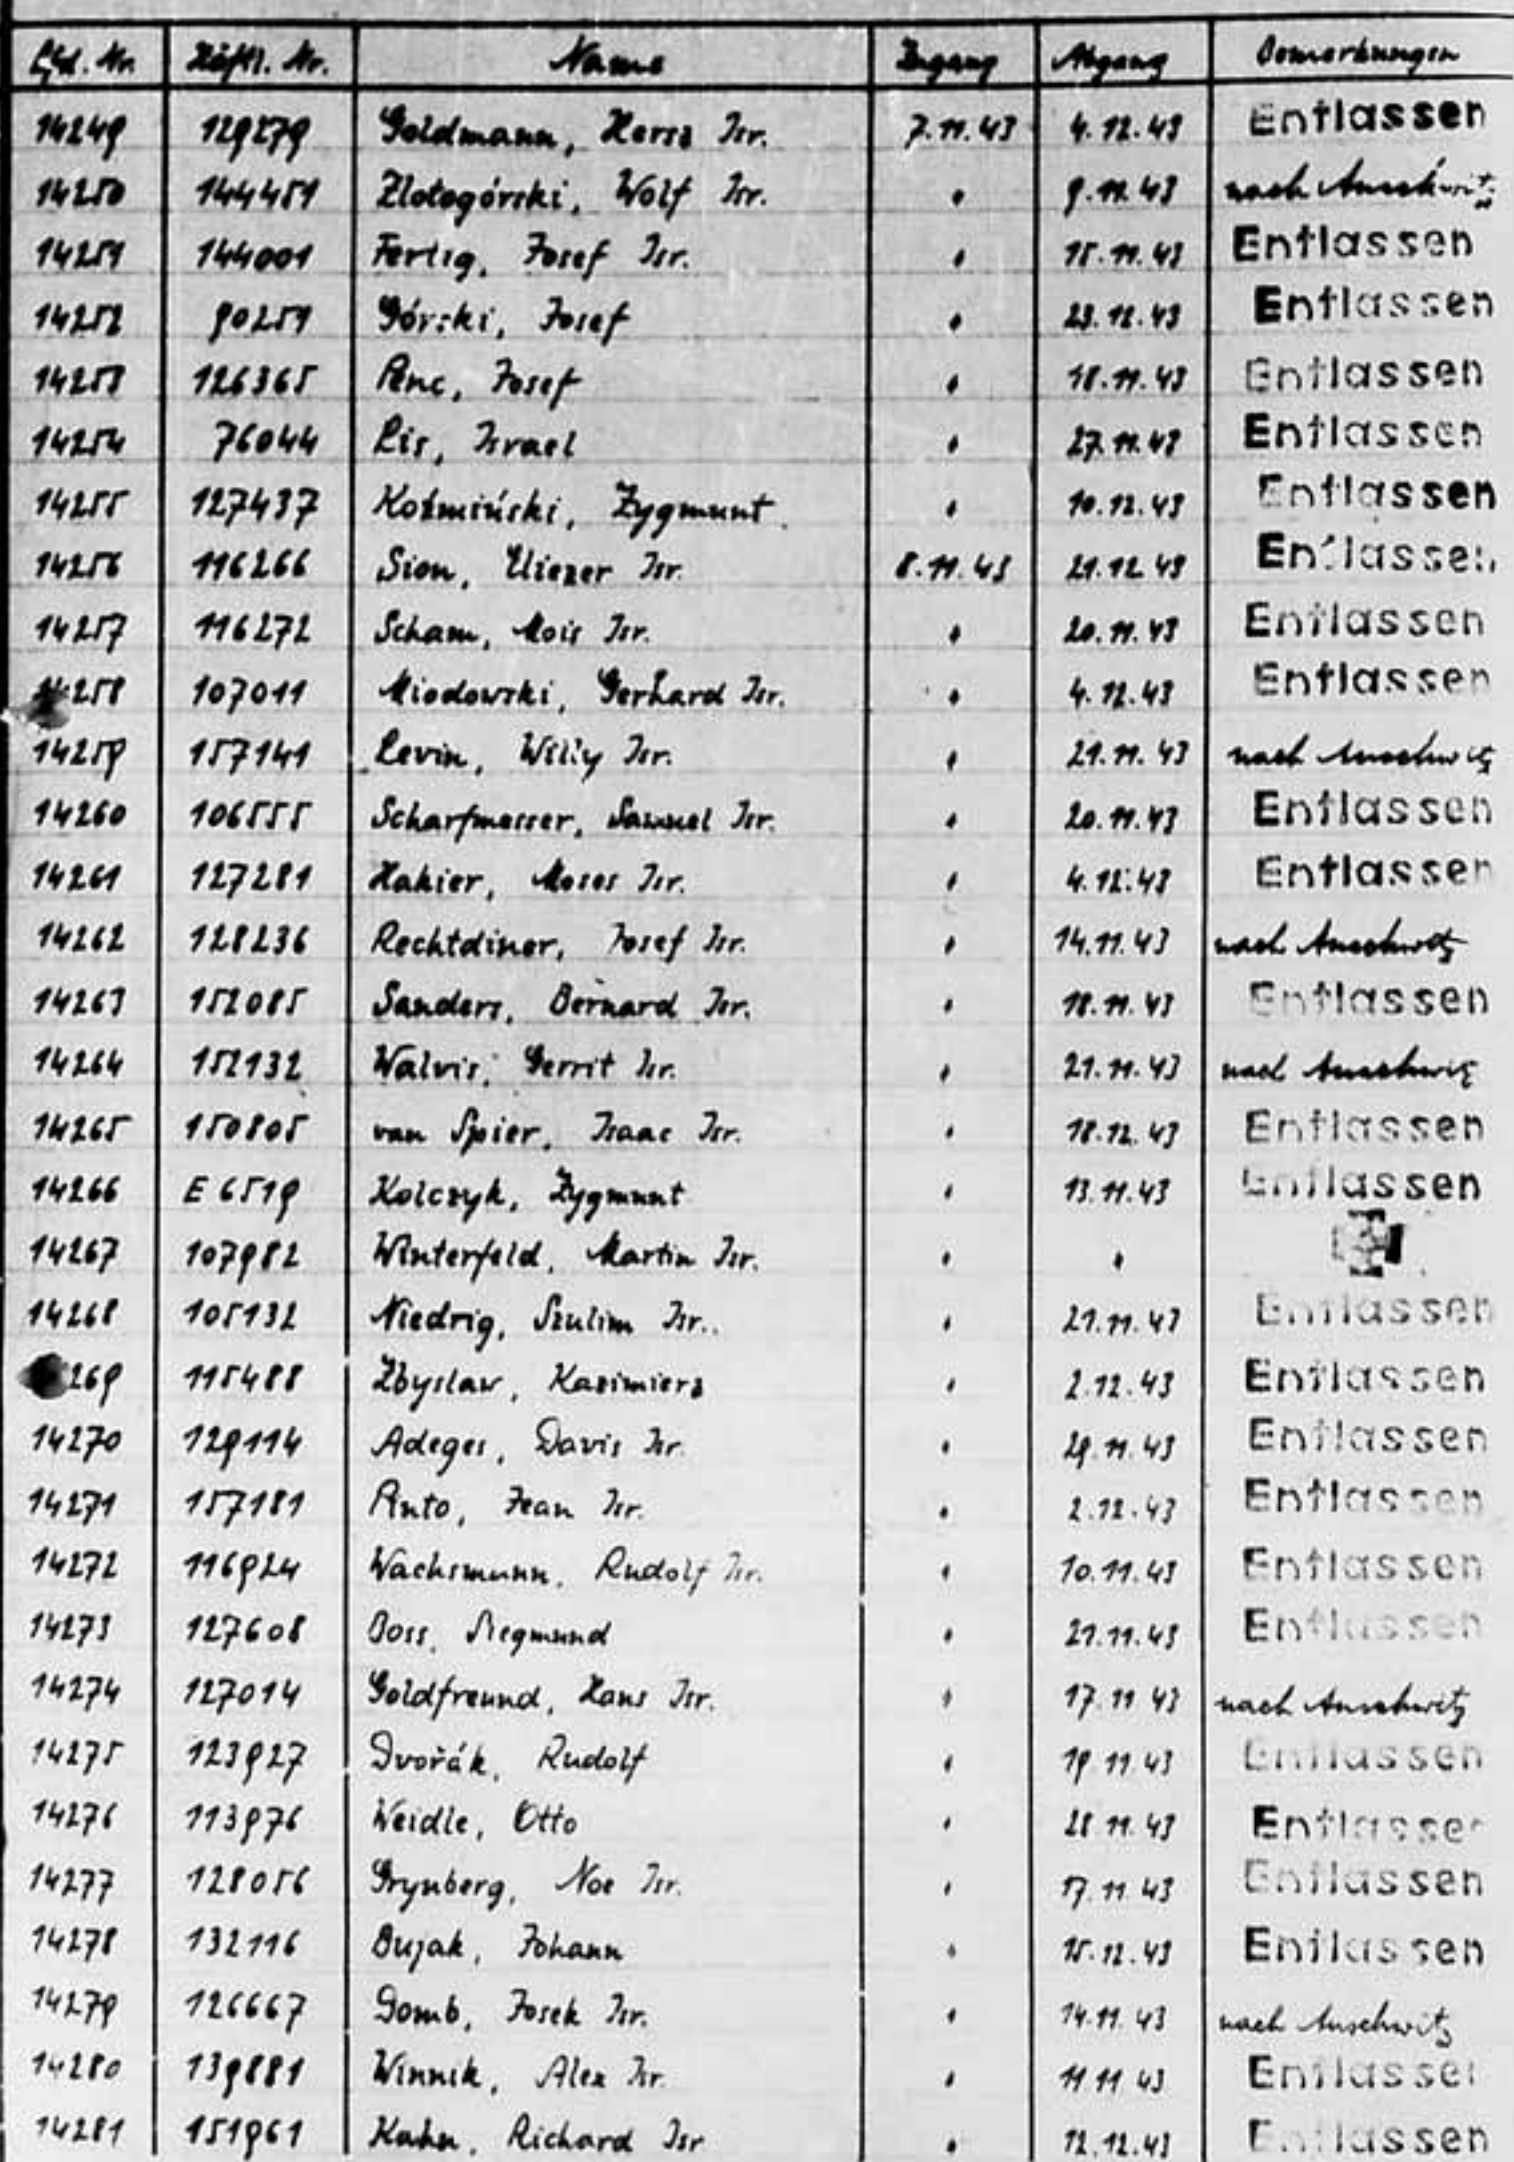 Lfd. Nr. Häftl. Nr. Name Zugang Abgang Bemerkungen
14249 129279 Goldmann, Hersz Isr. 7.11.43 4.12.43 Entlassen
14250 144451 Zlotogórski, Wolf Isr. " 9.11.43 nach Auschwitz
14251 144001 Fertig, Josef Isr. " 15.11.43 Entlassen
14252 90251 Górski, Josef " 23.12.43 Entlassen
14253 126365 Penc, Josef " 18.11.43 Entlassen
14254 76044 Lis, Israel " 27.11.43 Entlassen
14255 127437 Koźmiński, Zygmunt " 10.12.43 Entlassen
14256 116266 Sion, Eliezer Isr. 8.11.43 21.12.43 Entlassen
14257 116272 Scham, Mois Isr. " 20.11.43 Entlassen
14258 107011 Miodowski, Gerhard Isr. " 4.12.43 Entlassen
14259 157141 Levin, Willy Isr. " 21.11.43 nach Auschwitz
14260 106555 Scharfmesser, Samuel Isr. " 20.11.43 Entlassen
14261 127281 Hakier, Moses Isr. " 4.12.43 Entlassen
14262 128236 Rechtdiner, Josef Isr. " 14.11.43 nach Auschwitz
14263 152085 Sanders, Bernard Isr. " 18.11.43 Entlassen
14264 152132 Walvis, Gerrit Isr. " 21.11.43 nach Auschwitz
14265 150805 van Spier, Isaac Isr. " 18.12.43 Entlassen
14266 E 6519 Kolczyk, Zygmunt " 13.11.43 Entlassen
14267 107982 Winterfeld, Martin Isr. " "
14268 105132 Niedrig, Szulim Isr. " 21.11.43 Entlassen
269 115488 Zbyslaw, Kazimierz " 2.12.43 Entlassen
14270 129114 Adeges, Davis Isr. " 29.11.43 Entlassen
14271 157181 Pinto, Jean Isr. " 2.12.43 Entlassen
14272 116924 Wachsmann, Rudolf Isr. " 10.11.43 Entlassen
14273 127608 Boss, Siegmund " 21.11.43 Entlassen
14274 127014 Goldfreund, Hans Isr. " 17.11.43 nach Auschwitz
14275 123927 Dvořák, Rudolf " 19.11.43 Entlassen
14276 113976 Weidle, Otto " 28.11.43 Entlassen
14277 128056 Grynberg, Noe Isr. " 17.11.43 Entlassen
14278 132116 Bujak, Johann " 15.12.43 Entlassen
14279 126667 Domb, Josek Isr. " 14.11.43 nach Auschwitz
14280 139881 Winnik, Alex Isr. " 11.11.43 Entlassen
14281 151961 Kahn, Richard Isr " 12.12.43 Entlassen